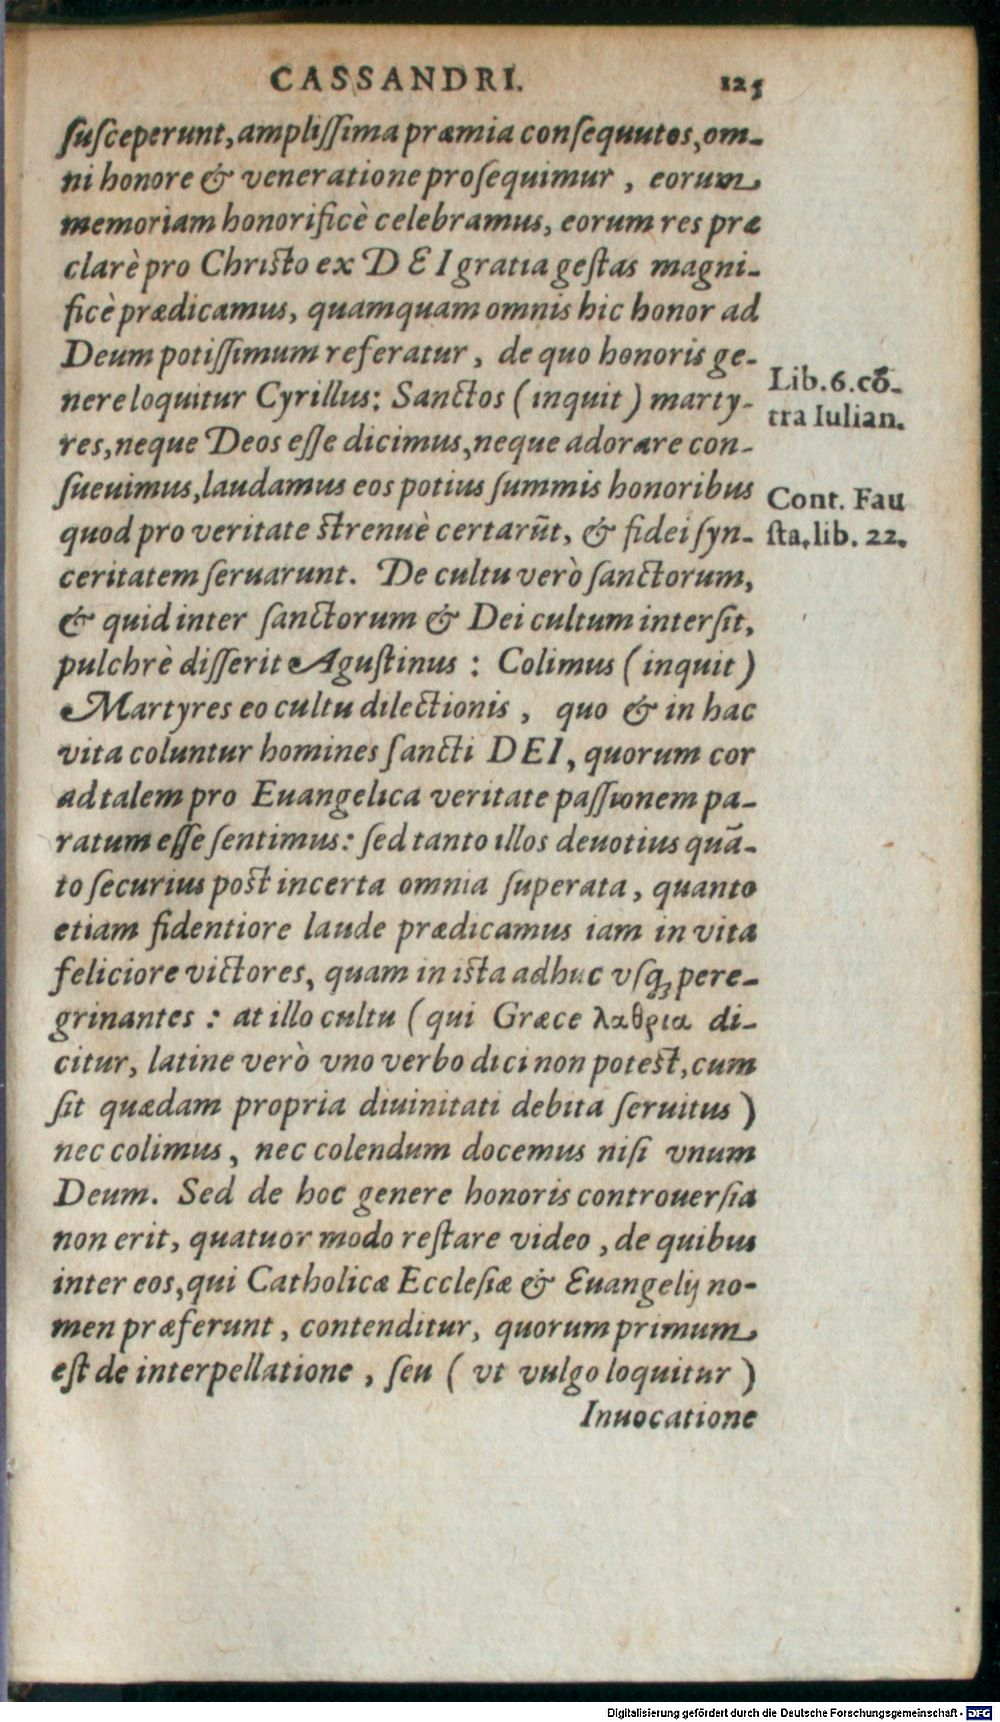 CASSANDRI. 125
ſuſceperunt, ampliſſima præmia conſequutos, om-
ni honore & veneratione proſequimur, eorum
memoriam honorificè celebramus, eorum res præ
clarè pro Christo ex DEI gratia geſtas magni-
ficè prædicamus, quamquam omnis hic honor ad
Deum potiſſimum referatur, de quo honoris ge-
nere loquitur Cyrillus: Sanctos (inquit) marty-
res, neque Deos eſſe dicimus, neque adorare con-
ſueuimus, laudamus eos potius ſummis honoribus
quod pro veritate strenuè certarūt, & fidei ſyn-
ceritatem ſeruarunt. De cultu verò ſanctorum,
& quid inter ſanctorum & Dei cultum interſit,
pulchrè diſſerit Aguſtinus: Colimus (inquit)
Martyres eo cultu dilectionis, quo & in hac
vita coluntur homines ſancti DEI, quorum cor
ad talem pro Euangelica veritate paſſionem pa-
ratum eſſe ſentimus: ſed tanto illos deuotius quā-
to ſecurius post incerta omnia ſuperata, quanto
etiam fidentiore laude prædicamus iam in vita
feliciore victores, quam in ista adhuc vſq; pere-
grinantes: at illo cultu (qui Græce λαθρια di-
citur, latine verò vno verbo dici non potest, cum
ſit quædam propria diuinitati debita ſeruitus)
nec colimus, nec colendum docemus niſi vnum
Deum. Sed de hoc genere honoris controuerſia
non erit, quatuor modo reſtare video, de quibus
inter eos, qui Catholicæ Eccleſiæ & Euangelij no-
men præferunt, contenditur, quorum primum
eſt de interpellatione, ſeu (vt vulgo loquitur)
Inuocatione
Lib. 6. cō-
tra Iulian.
Cont. Fau
ſta. lib. 22.
Digitalisierung gefördert durch die Deutsche Forschungsgemeinschaft - DFG